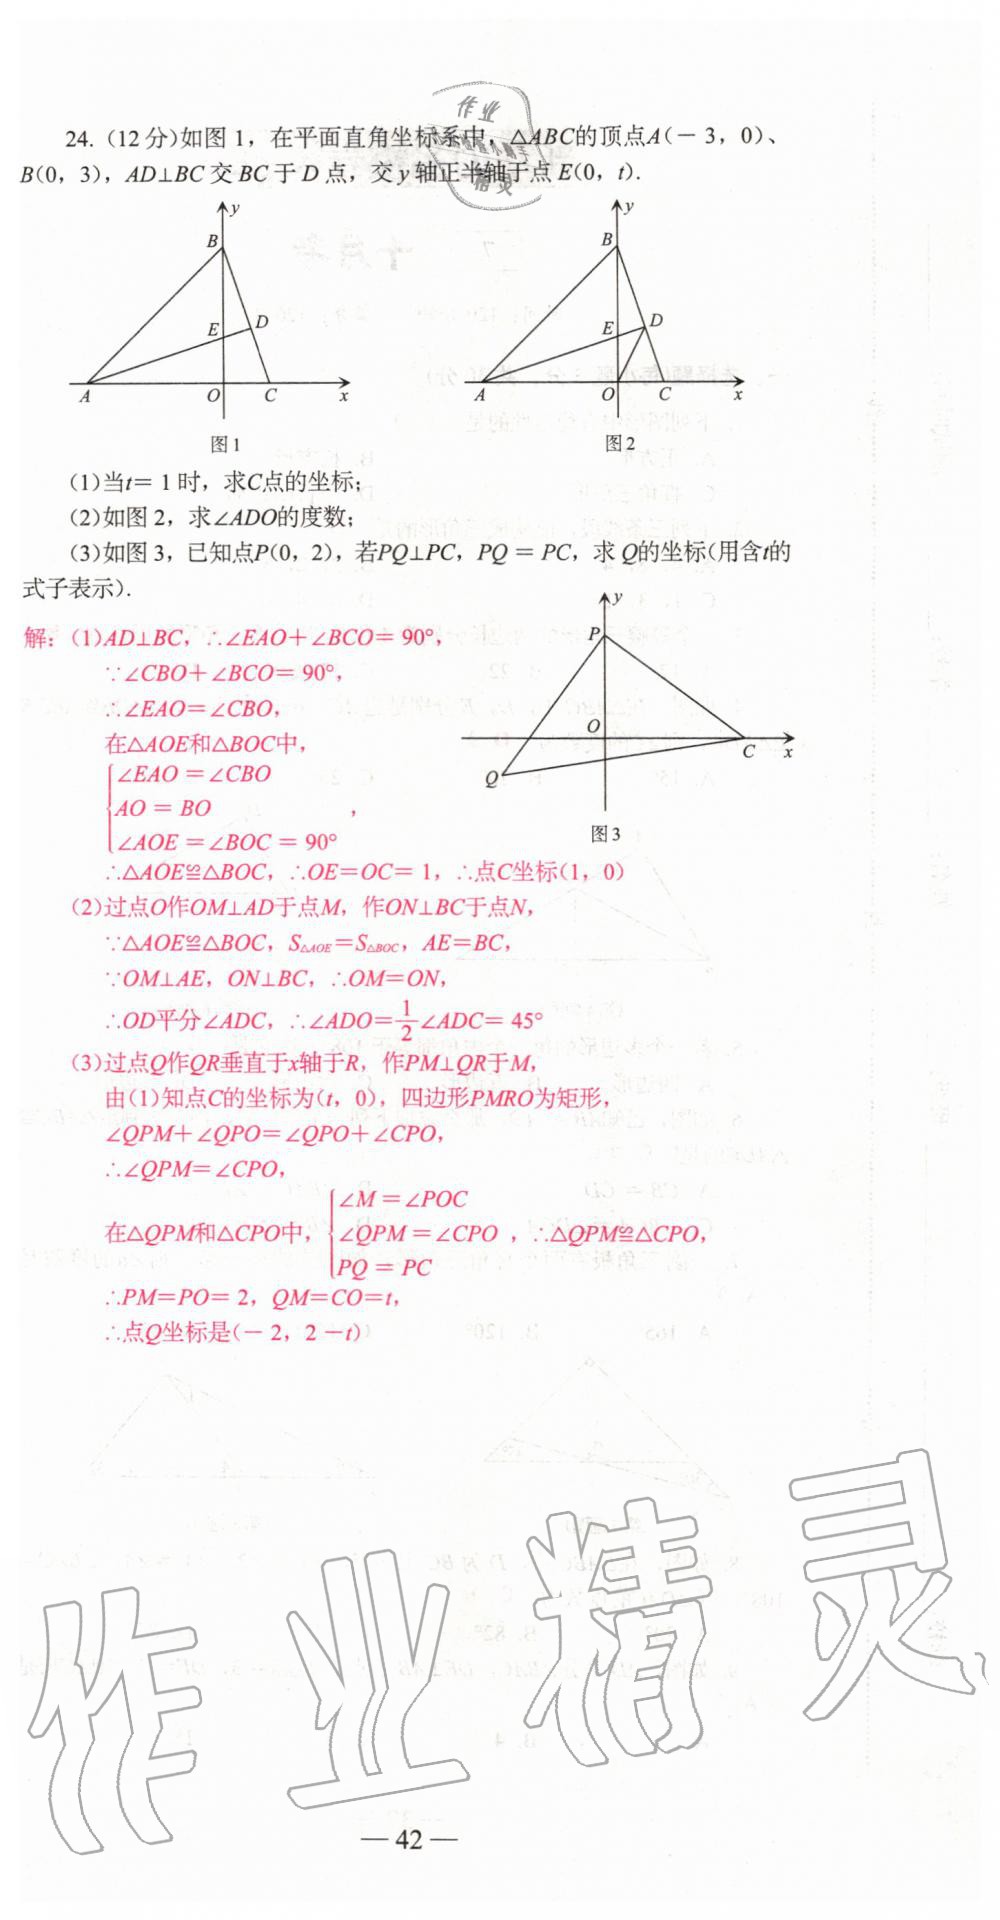 24. (12 分)如图 1，在平面直角坐标系中，△ABC的顶点A(－3，0)、
B(0，3)，AD⊥BC 交 BC 于 D 点，交 y 轴正半轴于点 E(0，t).
y
B
E
D
A
O
C
x
图1
y
B
E
D
A
O
C
x
图2
(1)当t＝1 时，求C点的坐标；
(2)如图 2，求∠ADO的度数；
(3)如图 3，已知点P(0，2)，若PQ⊥PC，PQ＝PC，求 Q的坐标(用含t的
式子表示).
y
P
O
C
x
Q
图3
解：(1)AD⊥BC，∴∠EAO＋∠BCO＝90°，
∵∠CBO＋∠BCO＝90°，
∴∠EAO＝∠CBO，
在△AOE和△BOC中，
∠EAO＝∠CBO
AO＝BO ，
∠AOE＝∠BOC＝90°
∴△AOE≌△BOC，∴OE＝OC＝1，∴点C坐标(1，0)
(2)过点O作OM⊥AD于点M，作ON⊥BC于点N，
∵△AOE≌△BOC，S△AOE＝S△BOC，AE＝BC，
∵OM⊥AE，ON⊥BC，∴OM＝ON，
∴OD平分∠ADC，∴∠ADO＝1/2∠ADC＝45°
(3)过点Q作QR垂直于x轴于R，作PM⊥QR于M，
由(1)知点C的坐标为(t，0)，四边形PMRO为矩形，
∠QPM＋∠QPO＝∠QPO＋∠CPO，
∴∠QPM＝∠CPO，
∠M＝∠POC
在△QPM和△CPO中，∠QPM＝∠CPO，∴△QPM≌△CPO，
PQ＝PC
∴PM＝PO＝2，QM＝CO＝t，
∴点Q坐标是(－2，2－t)
作业精灵
— 42 —